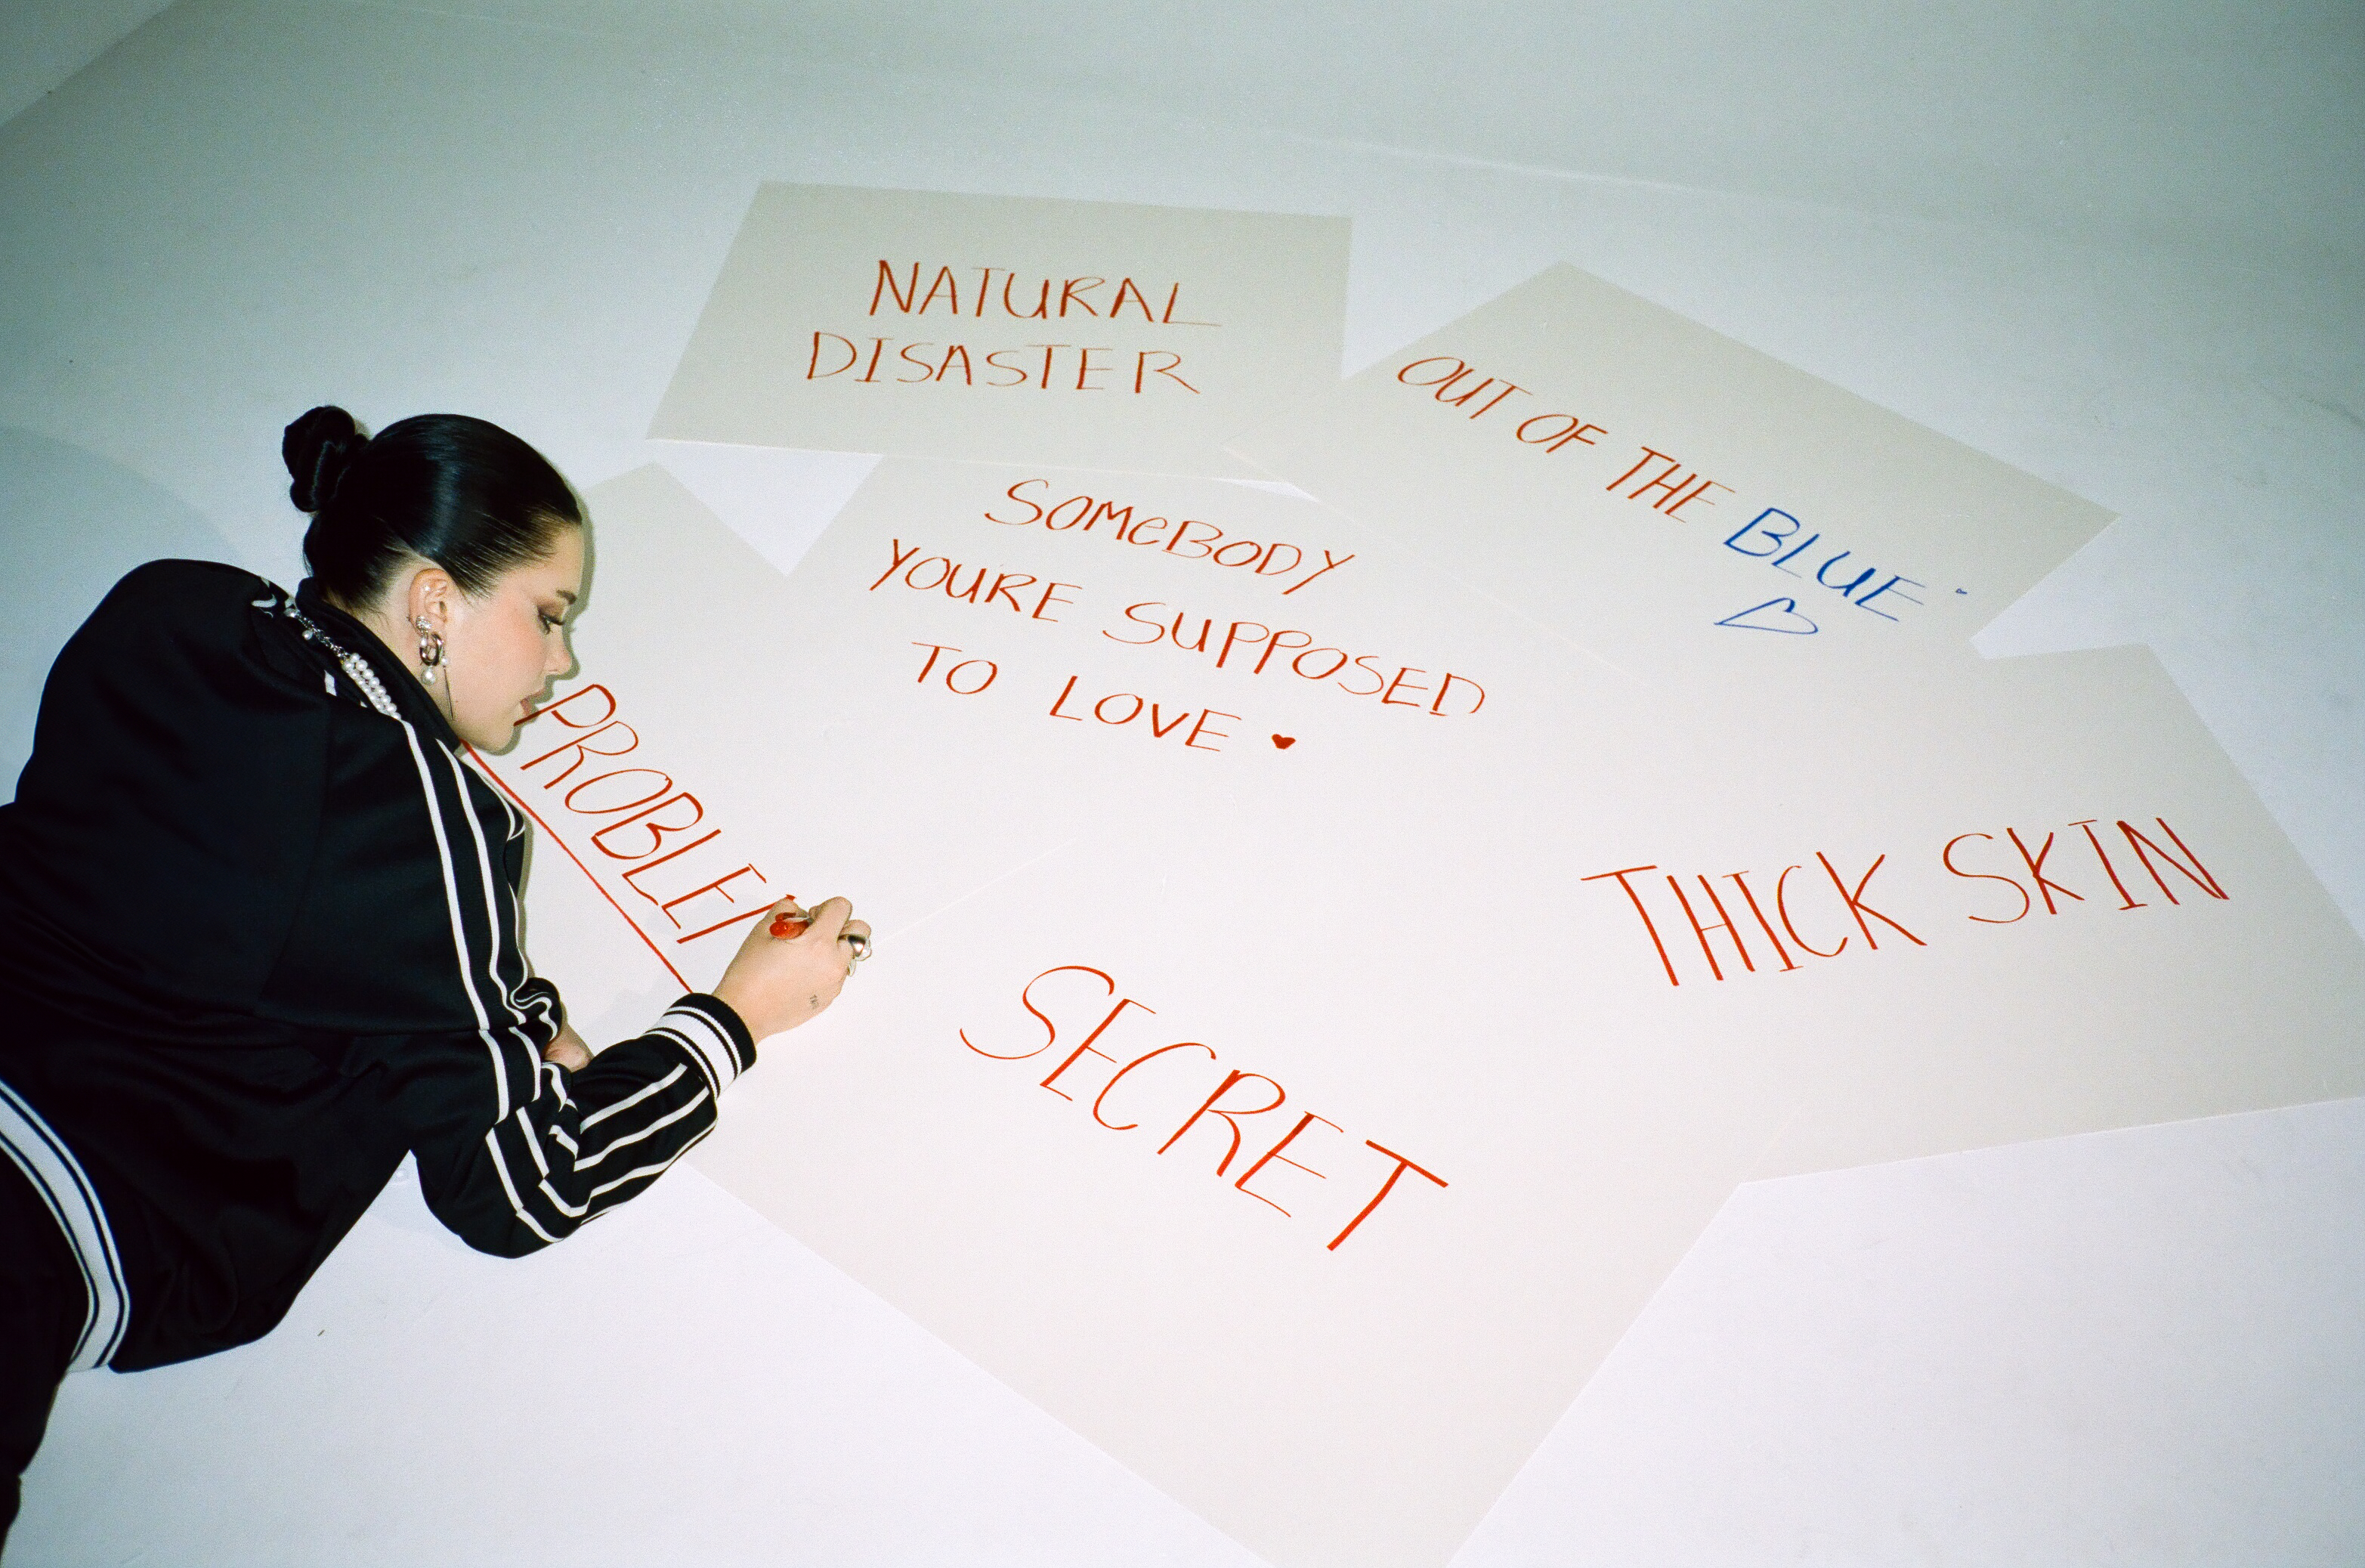 NATURAL
DISASTER
OUT OF THE BLUE
SOMEBODY
YOURE SUPPOSED
TO LOVE
PROBLE
THICK SKIN
SECRET